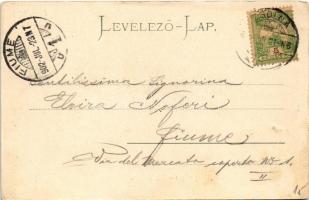 LEVELEZŐ-LAP.
FIUME
902 JUL. 23 N 7
Gentilissima Signorina
Elvira Nofori
Fiume
Via del Mercato coperto No 1.
II